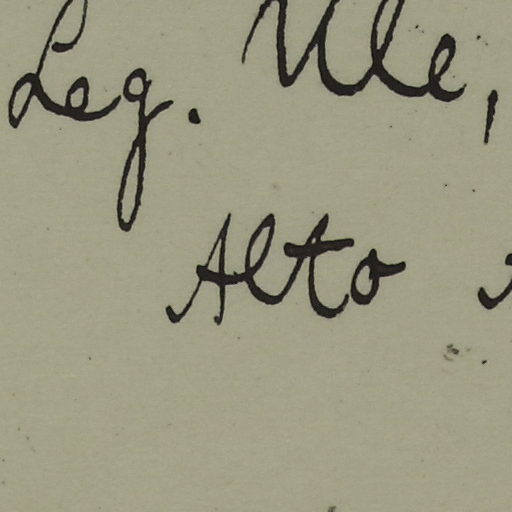 Leg. Ule,
Alto